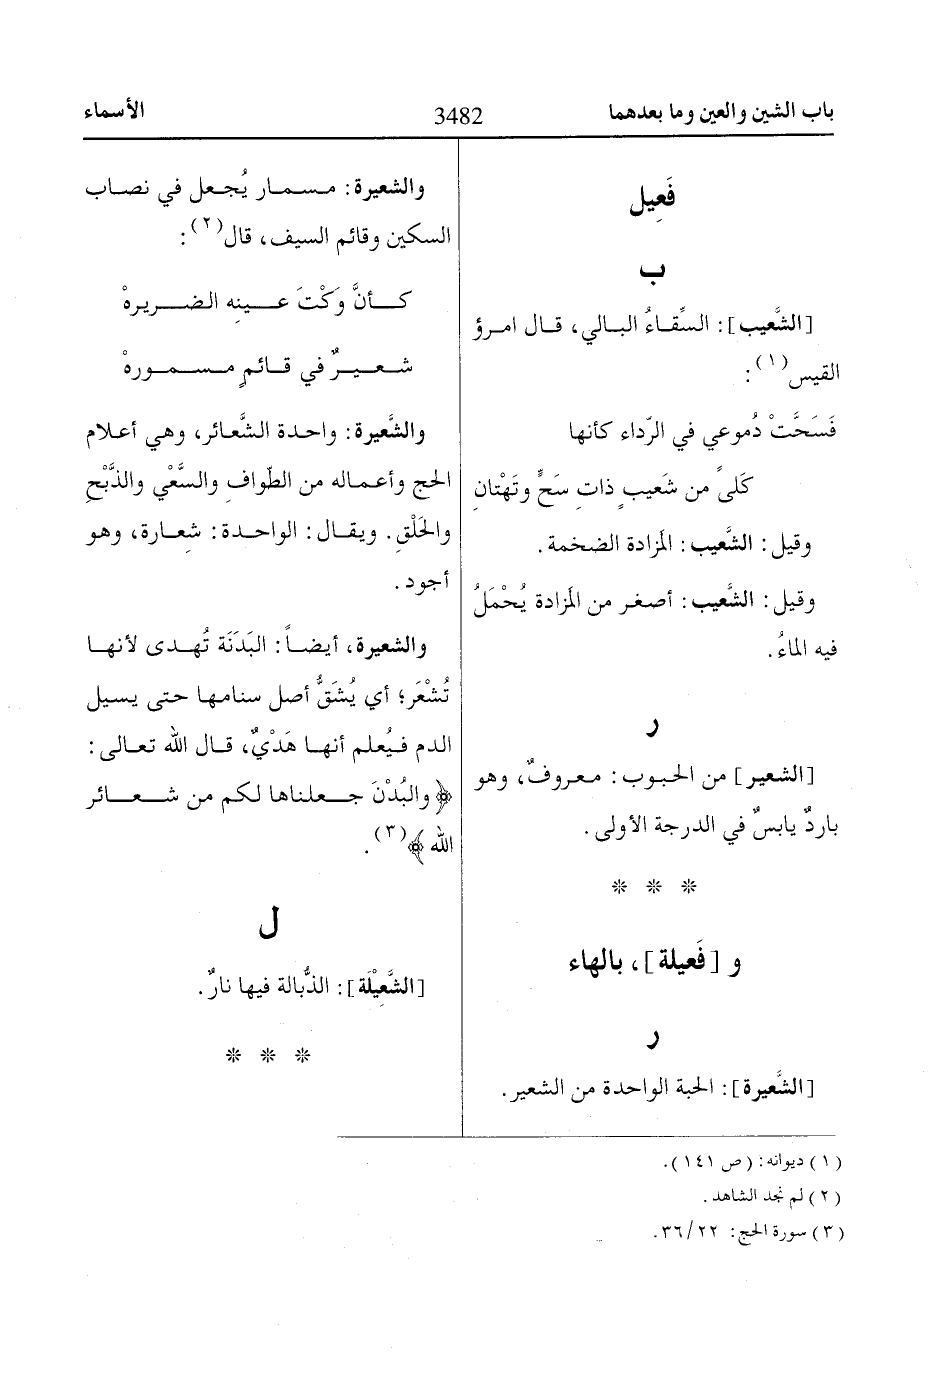 باب الشين والعين وما بعدهما 3482 الأسماء
فَعِيل
ب
[الشَّعيب]: السِّقاءُ البالي، قال امرؤ
القيس(١):
فَسَحَّتْ دُموعي في الرّداء كأنها
كَلىً من شَعيبٍ ذاتِ سَحٍّ وتَهْتانِ
وقيل: الشَّعيب: المَزادة الضخمة.
وقيل: الشَّعيب: أصغر من المَزادة يُحْمَلُ
فيه الماءُ.
ر
[الشعير] من الحبوب: معروفٌ، وهو
باردٌ يابسٌ في الدرجة الأولى.
* * *
و [فَعيلة]، بالهاء
ر
[الشَّعيرة]: الحبة الواحدة من الشعير.
والشعيرة: مسمار يُجعل في نصاب
السكين وقائم السيف، قال(٢):
كأنَّ وَكْتَ عينِه الضريرهْ
شعيرٌ في قائمٍ مسمورهْ
والشَّعيرة: واحدة الشَّعائر، وهي أعلام
الحج وأعماله من الطّوافِ والسَّعْي والذَّبْحِ
والحَلْقِ. ويقال: الواحدة: شعارة، وهو
أجود.
والشعيرة، أيضاً: البَدَنَة تُهدى لأنها
تُشْعَر؛ أي يُشَقُّ أصل سنامها حتى يسيل
الدم فيُعلم أنها هَدْيٌ، قال الله تعالى:
﴿والبُدْنَ جعلناها لكم من شعائر
الله﴾(٣).
ل
[الشَّعِيْلَة]: الذُّبالة فيها نارٌ.
* * *
(١) ديوانه: (ص ١٤١).
(٢) لم نجد الشاهد.
(٣) سورة الحج: ٣٦/٢٢.